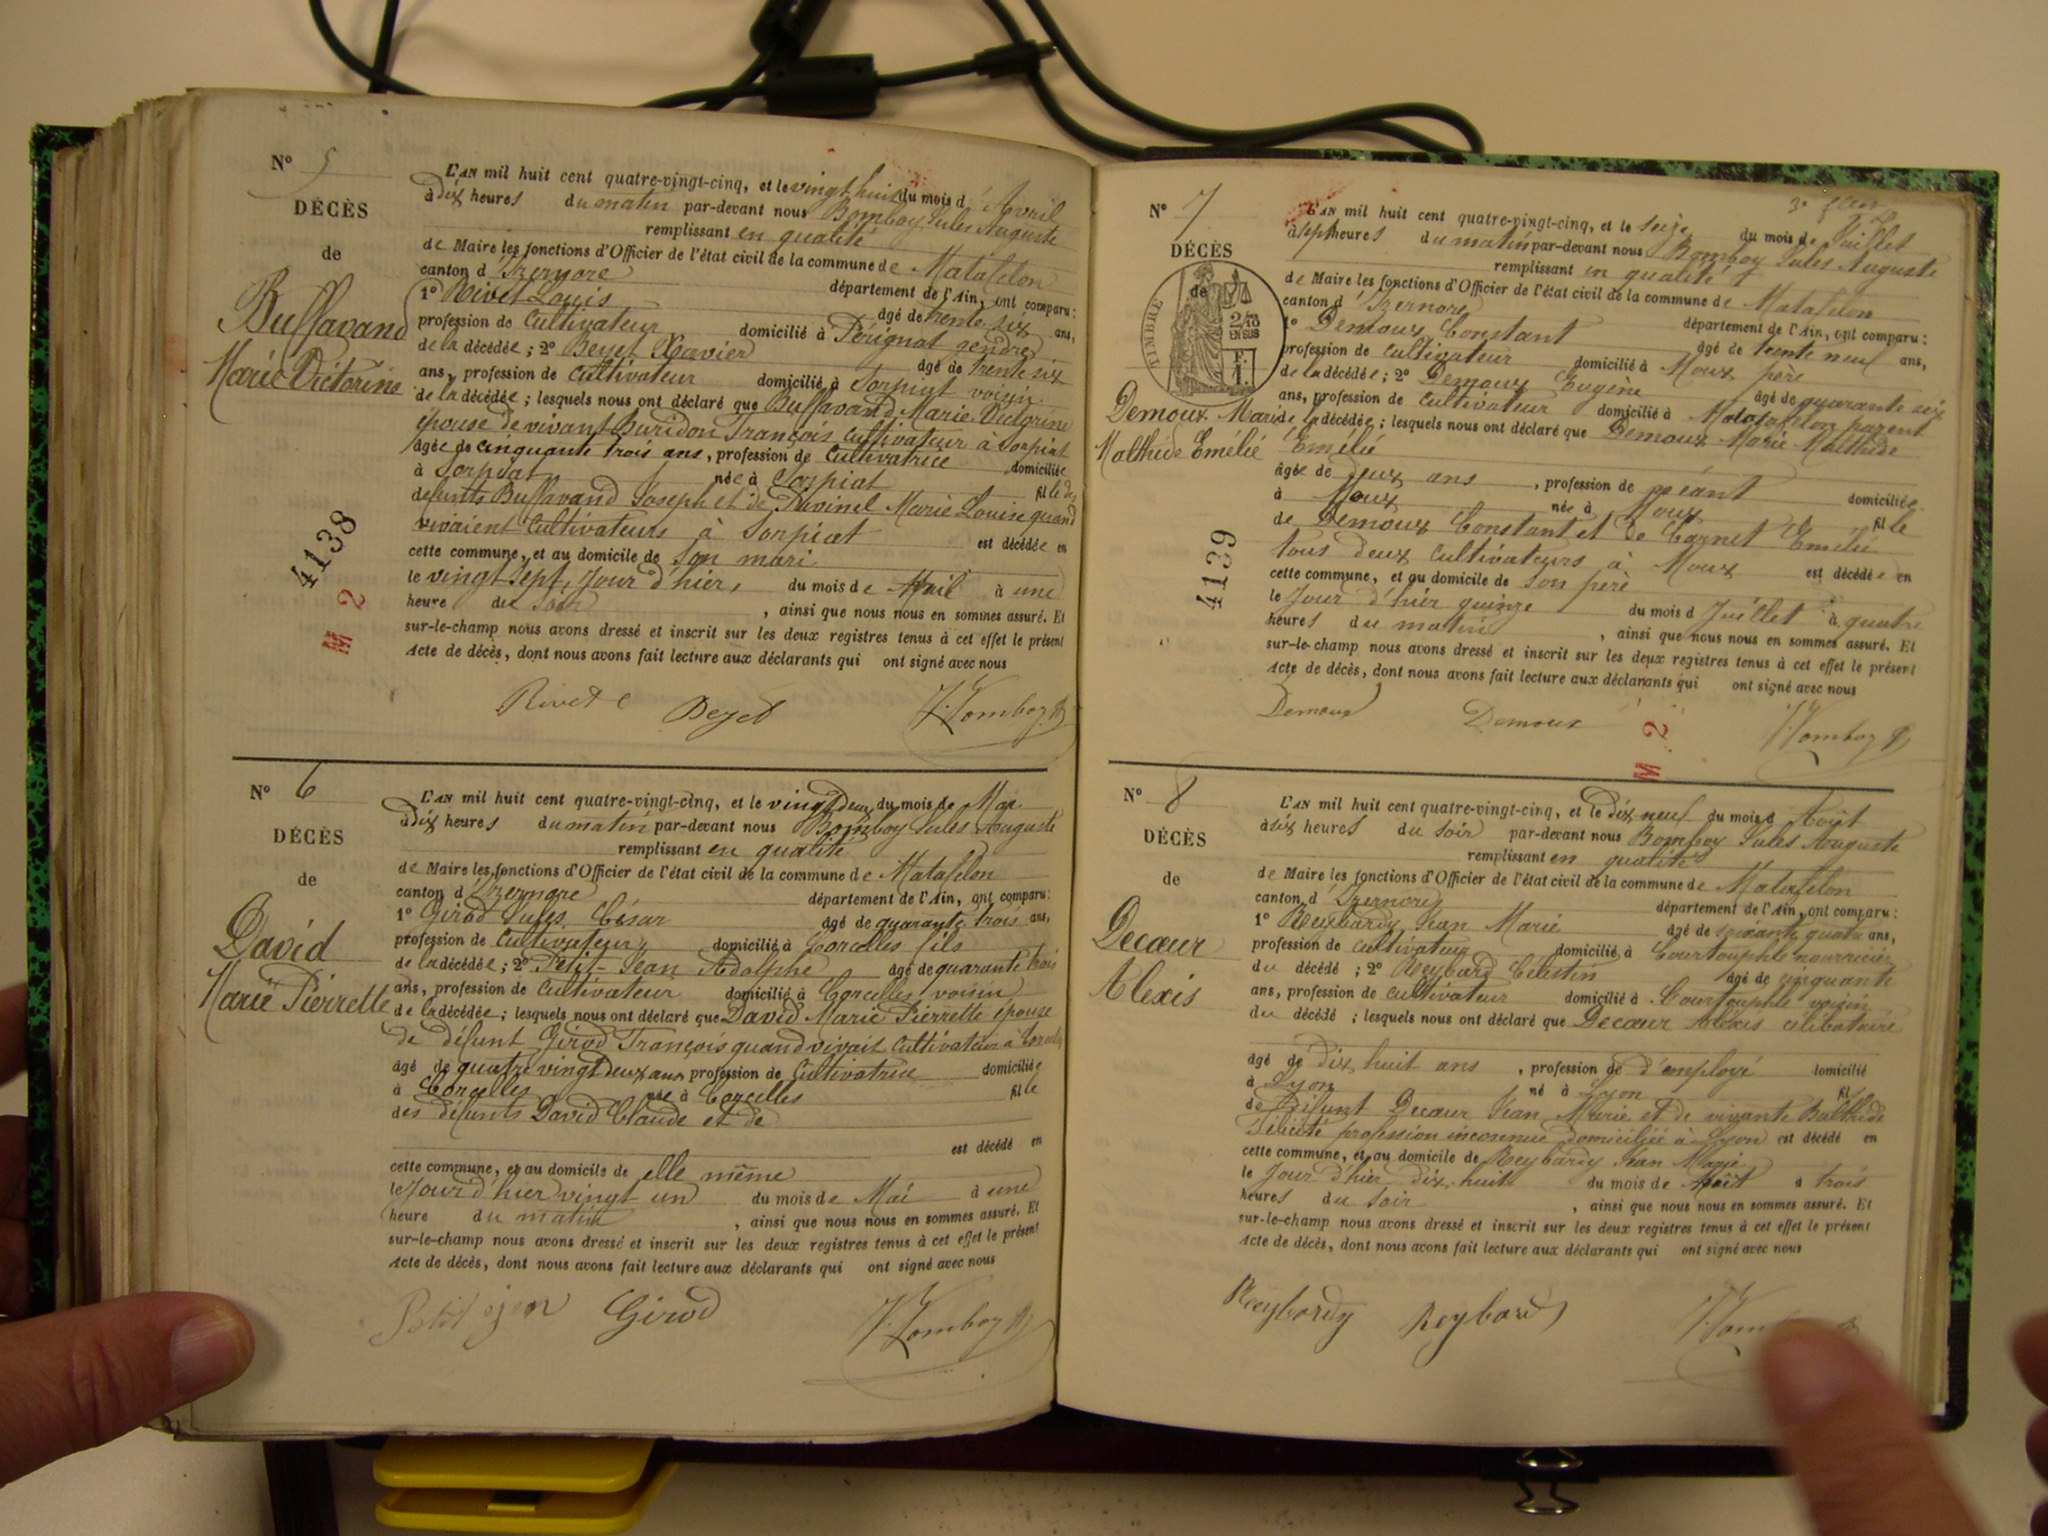 N° 5
DÉCÈS
de
Buffavand
Marie Victorine
4138
M 2
L'AN mil huit cent quatre-vingt-cinq, et le vingt huit du mois d'Avril
à dix heures du matin par-devant nous Bomboy Jules Auguste
remplissant en qualité
de Maire les fonctions d'Officier de l'état civil de la commune de Matafelon
canton d'Izernore département de l'Ain, ont comparu:
1° Rivet Louis âgé de trente six ans,
profession de Cultivateur domicilié à Pérignat gendre
de la décédée; 2° Beyet Xavier âgé de trente six
ans, profession de Cultivateur domicilié à Sorpiat voisin
de la décédée; lesquels nous ont déclaré que Buffavand Marie Victorine
épouse de vivant Buridon François Cultivateur à Sorpiat
âgée de cinquante trois ans, profession de Cultivatrice domiciliée
à Sorpiat née à Sorpiat fille des
defunts Buffavand Joseph et de Marie Louise quand
vivaient Cultivateurs à Sorpiat est décédée en
cette commune, et au domicile de Son mari
le vingt sept, Jour d'hier, du mois de Avril à une
heure du Soir, ainsi que nous nous en sommes assuré. Et
sur-le-champ nous avons dressé et inscrit sur les deux registres tenus à cet effet le présent
Acte de décès, dont nous avons fait lecture aux déclarants qui ont signé avec nous
Rivet Beyet J. Bomboy
N° 6
DÉCÈS
de
David
Marie Pierrette
L'AN mil huit cent quatre-vingt-cinq, et le vingt deux du mois de Mai
à dix heures du matin par-devant nous Bomboy Jules Auguste
remplissant en qualité
de Maire les fonctions d'Officier de l'état civil de la commune de Matafelon
canton d'Izernore département de l'Ain, ont comparu:
1° Girod Jules César âgé de quarante trois ans,
profession de Cultivateur domicilié à Corcelles fils
de la décédée; 2° Petit-Jean Adolphe âgé de quarante trois
ans, profession de Cultivateur domicilié à Corcelles voisin
de la décédée; lesquels nous ont déclaré que David Marie Pierrette épouse
de défunt Girod François quand vivait Cultivateur à Corcelles
âgé de quatre vingt deux ans profession de Cultivatrice domiciliée
à Corcelles née à Corcelles fille
des défunts David Claude et de
est décédé en
cette commune, et au domicile de elle même
le Jour d'hier vingt un du mois de Mai à une
heure du matin, ainsi que nous nous en sommes assuré. Et
sur-le-champ nous avons dressé et inscrit sur les deux registres tenus à cet effet le présent
Acte de décès, dont nous avons fait lecture aux déclarants qui ont signé avec nous
Petitjean Girod J. Bomboy
N° 7
DÉCÈS
de
TIMBRE
2/10
EN SUS
F.
1.
Demoux Marie
Malthide Emélié
4139
L'AN mil huit cent quatre-vingt-cinq, et le seize du mois de Juillet
à sept heures du matin par-devant nous Bomboy Jules Auguste
remplissant en qualité
de Maire les fonctions d'Officier de l'état civil de la commune de Matafelon
canton d'Izernore département de l'Ain, ont comparu:
1° Demoux Constant âgé de trente neuf ans,
profession de cultivateur domicilié à Moux père
de la décédée; 2° Demoux Eugène âgé de quarante six
ans, profession de cultivateur domicilié à Matafelon parent
de la décédée; lesquels nous ont déclaré que Demoux Marie Malthide
Emélié
âgée de deux ans, profession de néant domiciliée
à Moux née à Moux fille
de Demoux Constant et de Carnet Emélié
tous deux cultivateurs à Moux est décédée en
cette commune, et au domicile de son père
le Jour d'hier quinze du mois d Juillet à quatre
heures du matin, ainsi que nous nous en sommes assuré. Et
sur-le-champ nous avons dressé et inscrit sur les deux registres tenus à cet effet le présent
Acte de décès, dont nous avons fait lecture aux déclarants qui ont signé avec nous
Demoux Demoux J. Bomboy
M 2
N° 8
DÉCÈS
de
Decœur
Alexis
L'AN mil huit cent quatre-vingt-cinq, et le dix neuf du mois d'Août
à six heures du soir par-devant nous Bomboy Jules Auguste
remplissant en qualité
de Maire les fonctions d'Officier de l'état civil de la commune de Matafelon
canton d'Izernore département de l'Ain, ont comparu:
1° Reybardy Jean Marie âgé de soixante quatre ans,
profession de cultivateur domicilié à Courtouphle nourricier
du décédé; 2° Reybard Célestin âgé de cinquante
ans, profession de cultivateur domicilié à Courtouphle voisin
du décédé; lesquels nous ont déclaré que Decœur Alexis célibataire
âgé de dix huit ans, profession de d'employé domicilié
à Lyon né à Lyon fils
de défunt Decœur Jean Marie et de vivante
Félicité profession inconnue domiciliée à Lyon est décédé en
cette commune, et au domicile de Reybardy Jean Marie
le Jour d'hier dix huit du mois de Août à trois
heures du soir, ainsi que nous nous en sommes assuré. Et
sur-le-champ nous avons dressé et inscrit sur les deux registres tenus à cet effet le présent
Acte de décès, dont nous avons fait lecture aux déclarants qui ont signé avec nous
Reybardy Reybard